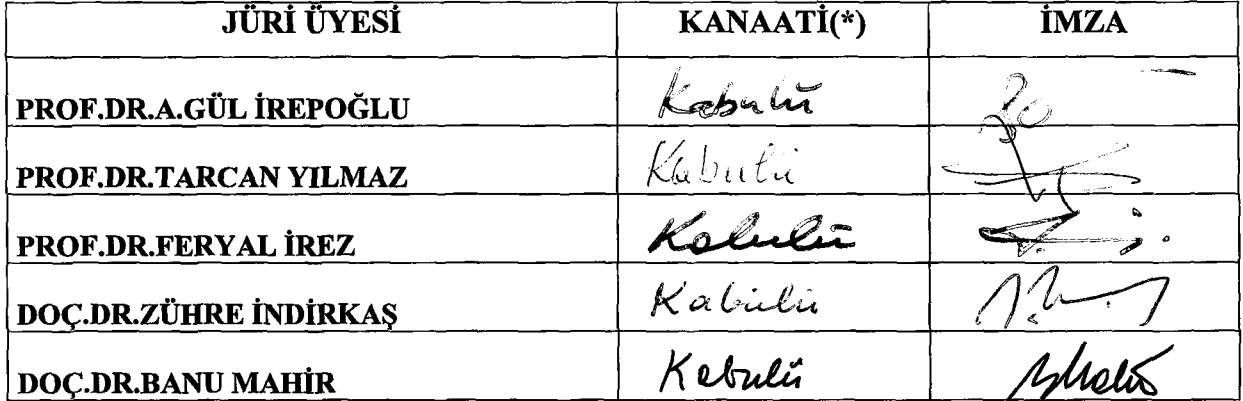 JÜRİ ÜYESİ KANAATİ(*) İMZA
PROF.DR.A.GÜL İREPOĞLU Kabulü
PROF.DR.TARCAN YILMAZ Kabulü
PROF.DR.FERYAL İREZ Kabulü
DOÇ.DR.ZÜHRE İNDİRKAŞ Kabulü
DOÇ.DR.BANU MAHİR Kabulü